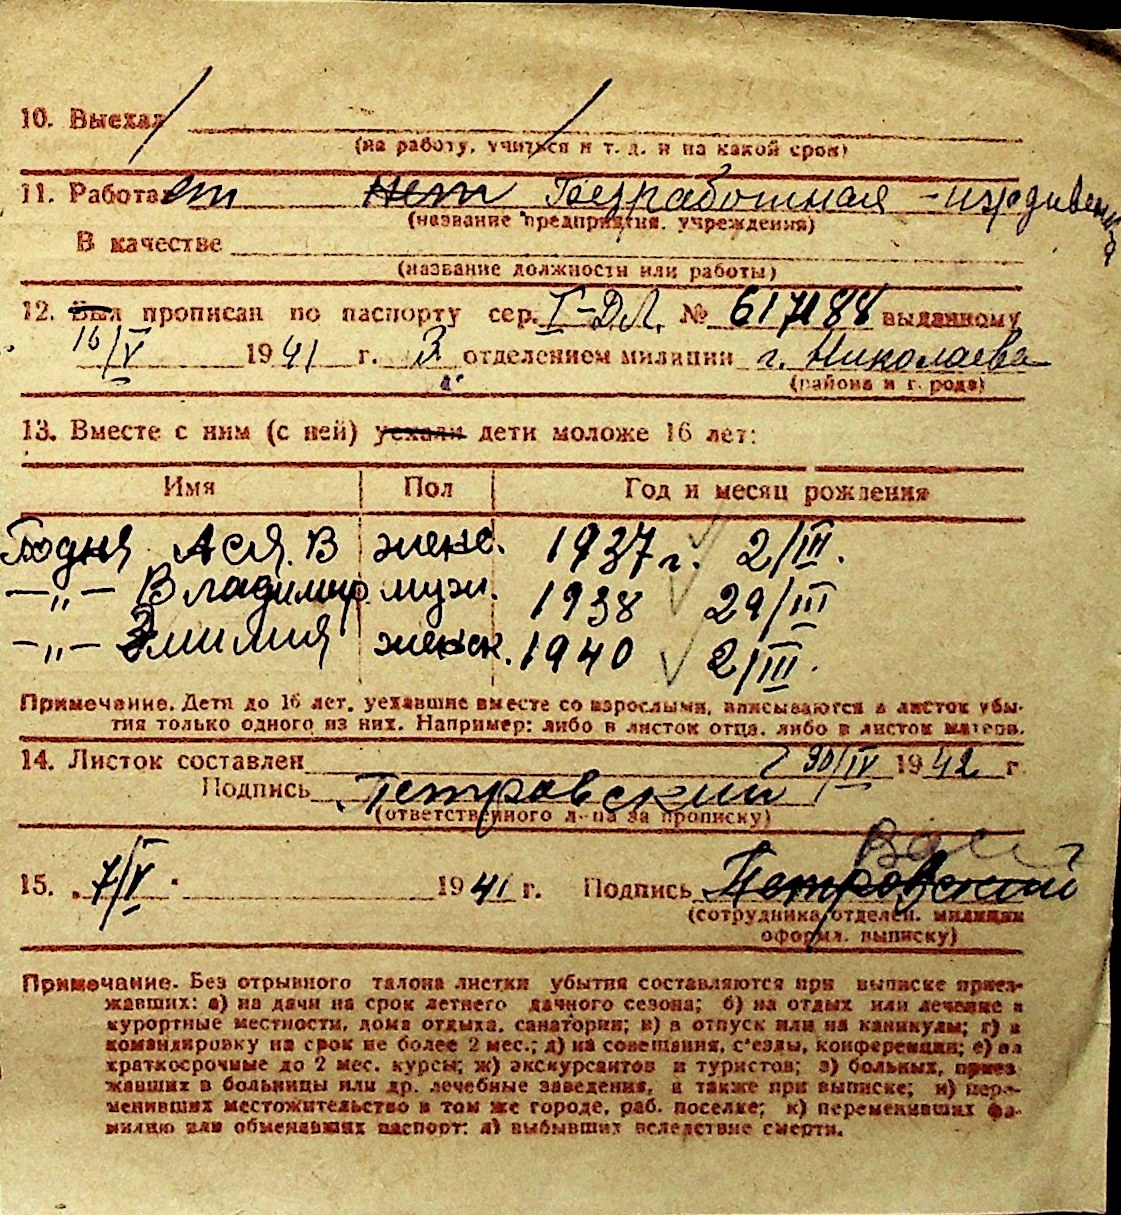 10. Выехал
(на работу, учиться и т. д. и на какой срок)
11. Работает нет Безработная - иждивенка
(название предприятия, учреждения)
В качестве
(название должности или работы)
12. Был прописан по паспорту сер. I-ДЛ № 617188 выданному
16/V 1941 г. 3 отделением милиции г. Николаева
(района и города)
13. Вместе с ним (с ней) уехали дети моложе 16 лет:
Имя Пол Год и месяц рождения
Бодня Ася. В женс. 1937 г. 2/III.
—„— Владимир муж. 1938 29/III
—„— Эмилия женск. 1940 2/III.
Примечание. Дети до 16 лет, уехавшие вместе со взрослыми, вписываются в листок убы-
тия только одного из них. Например: либо в листок отца, либо в листок матери.
14. Листок составлен 30/IV 1942 г
Подпись Петровский
(ответственного л-ца за прописку)
15. 7/V 1941 г. Подпись Петровский
(сотрудника отделен. милиции
оформ. выписку)
Примечание. Без отрывного талона листки убытия составляются при выписке приез-
жавших: а) на дачи на срок летнего дачного сезона; б) на отдых или лечение в
курортные местности, дома отдыха, санатории; в) в отпуск или на каникулы; г) в
командировку на срок не более 2 мес.; д) на совещания, с'езды, конференции; е) на
краткосрочные до 2 мес. курсы; ж) экскурсантов и туристов; з) больных, приез
жавших в больницы или др. лечебные заведения, а также при выписке; и) пере-
менивших местожительство в том же городе, раб. поселке; к) переменивших фа-
милию или обменявших паспорт; л) выбывших вследствие смерти.